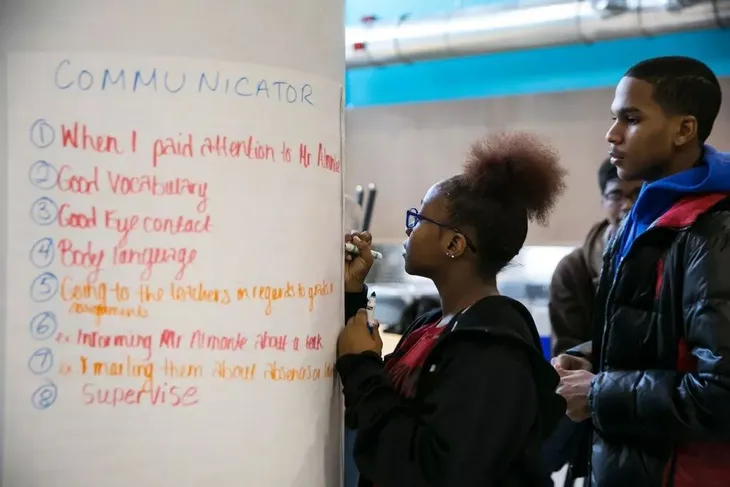 COMMUNICATOR
① When I paid attention to Mr Almonte
② Good Vocabulary
③ Good Eye contact
④ Body language
⑤ Going to the teachers or in regards to grades
assignments
⑥ ex Informing Mr Almonte about a task
⑦ ex. Emailing them about absences
⑧ Supervise